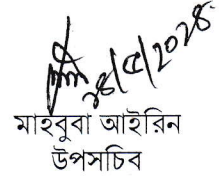 ২৪/৫/২০২৪
মাহবুবা আইরিন
উপসচিব